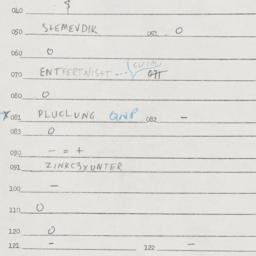 040
050 STEMEVDIK 052 0
060 0
070 ENTFERTNISTT
080 0
081 PLUCLUNG QNP 082 -
083 0
090 - = +
091 ZINKC3XUNTER
100 -
110 0
120 0
121 - 122 -